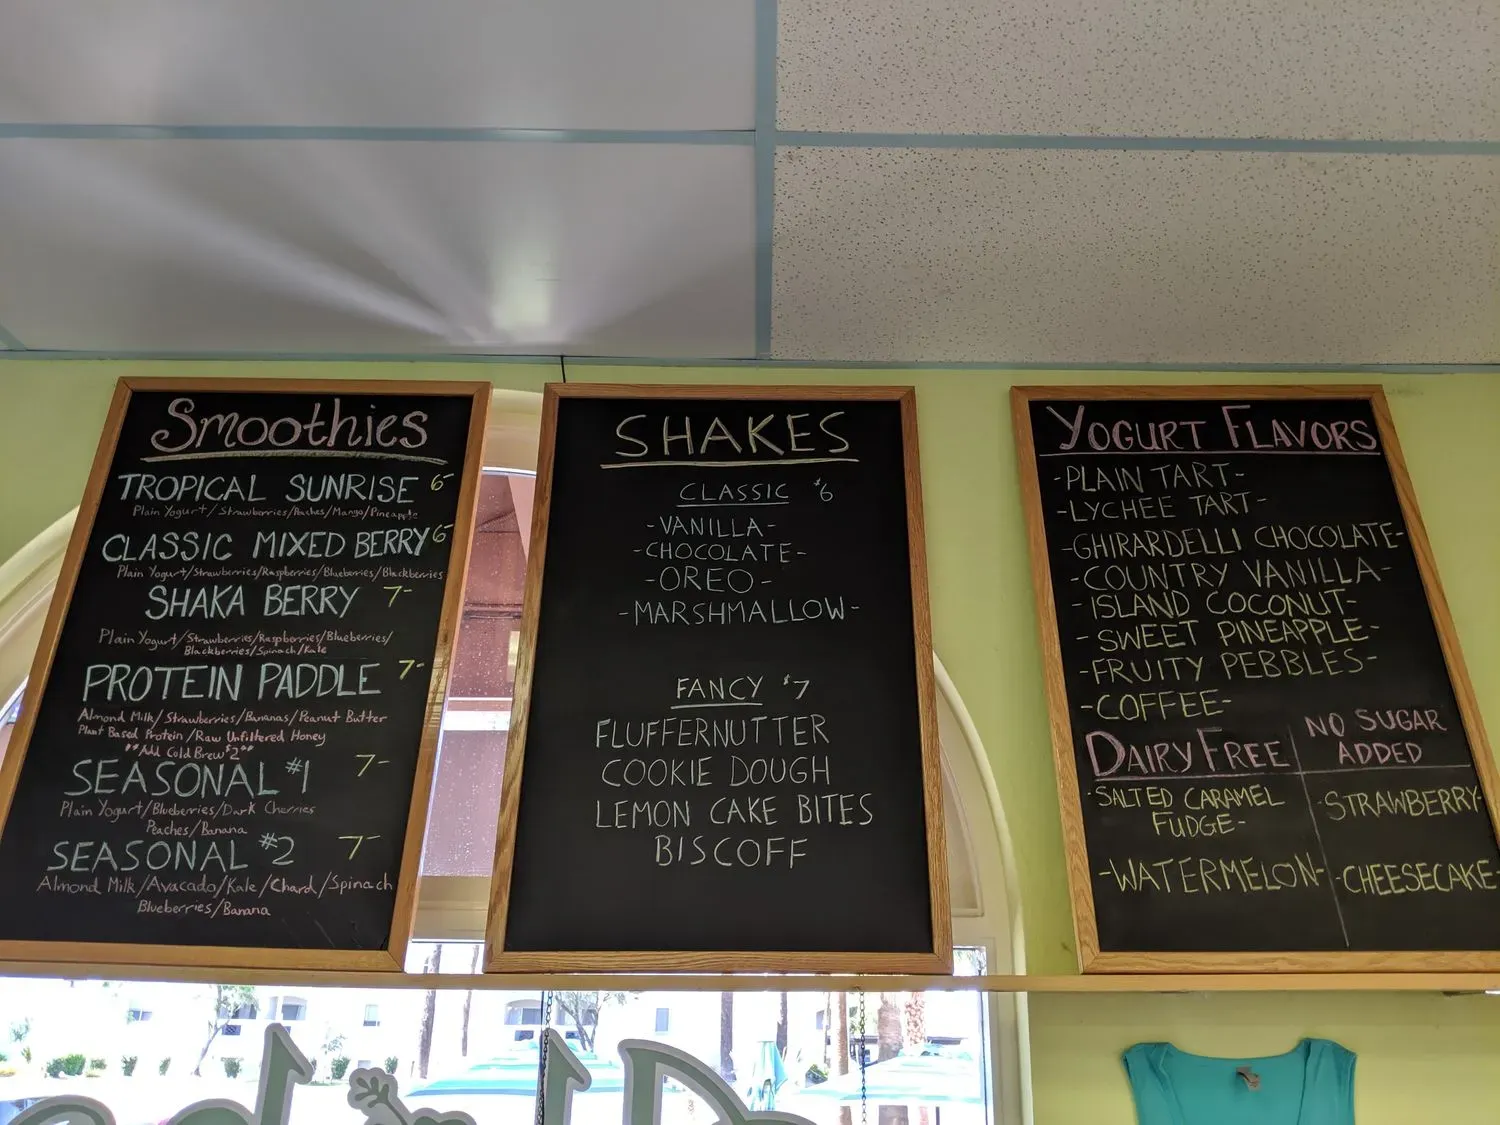 Smoothies
TROPICAL SUNRISE 6-
Plain Yogurt/Strawberries/Peaches/Mango/Pineapple
CLASSIC MIXED BERRY 6-
Plain Yogurt/Strawberries/Raspberries/Blueberries/Blackberries
SHAKA BERRY 7-
Plain Yogurt/Strawberries/Raspberries/Blueberries/
Blackberries/Spinach/Kale
PROTEIN PADDLE 7-
Almond Milk/Strawberries/Bananas/Peanut Butter
Plant Based Protein/Raw Unfiltered Honey
**Add Cold Brew $2**
SEASONAL #1 7-
Plain Yogurt/Blueberries/Dark Cherries
Peaches/Banana
SEASONAL #2 7-
Almond Milk/Avacado/Kale/Chard/Spinach
Blueberries/Banana
SHAKES
CLASSIC $6
-VANILLA-
-CHOCOLATE-
-OREO-
-MARSHMALLOW-
FANCY $7
FLUFFERNUTTER
COOKIE DOUGH
LEMON CAKE BITES
BISCOFF
YOGURT FLAVORS
-PLAIN TART-
-LYCHEE TART-
-GHIRARDELLI CHOCOLATE-
-COUNTRY VANILLA-
-ISLAND COCONUT-
-SWEET PINEAPPLE-
-FRUITY PEBBLES-
-COFFEE-
DAIRY FREE
-SALTED CARAMEL
FUDGE-
-WATERMELON-
NO SUGAR
ADDED
-STRAWBERRY-
-CHEESECAKE-